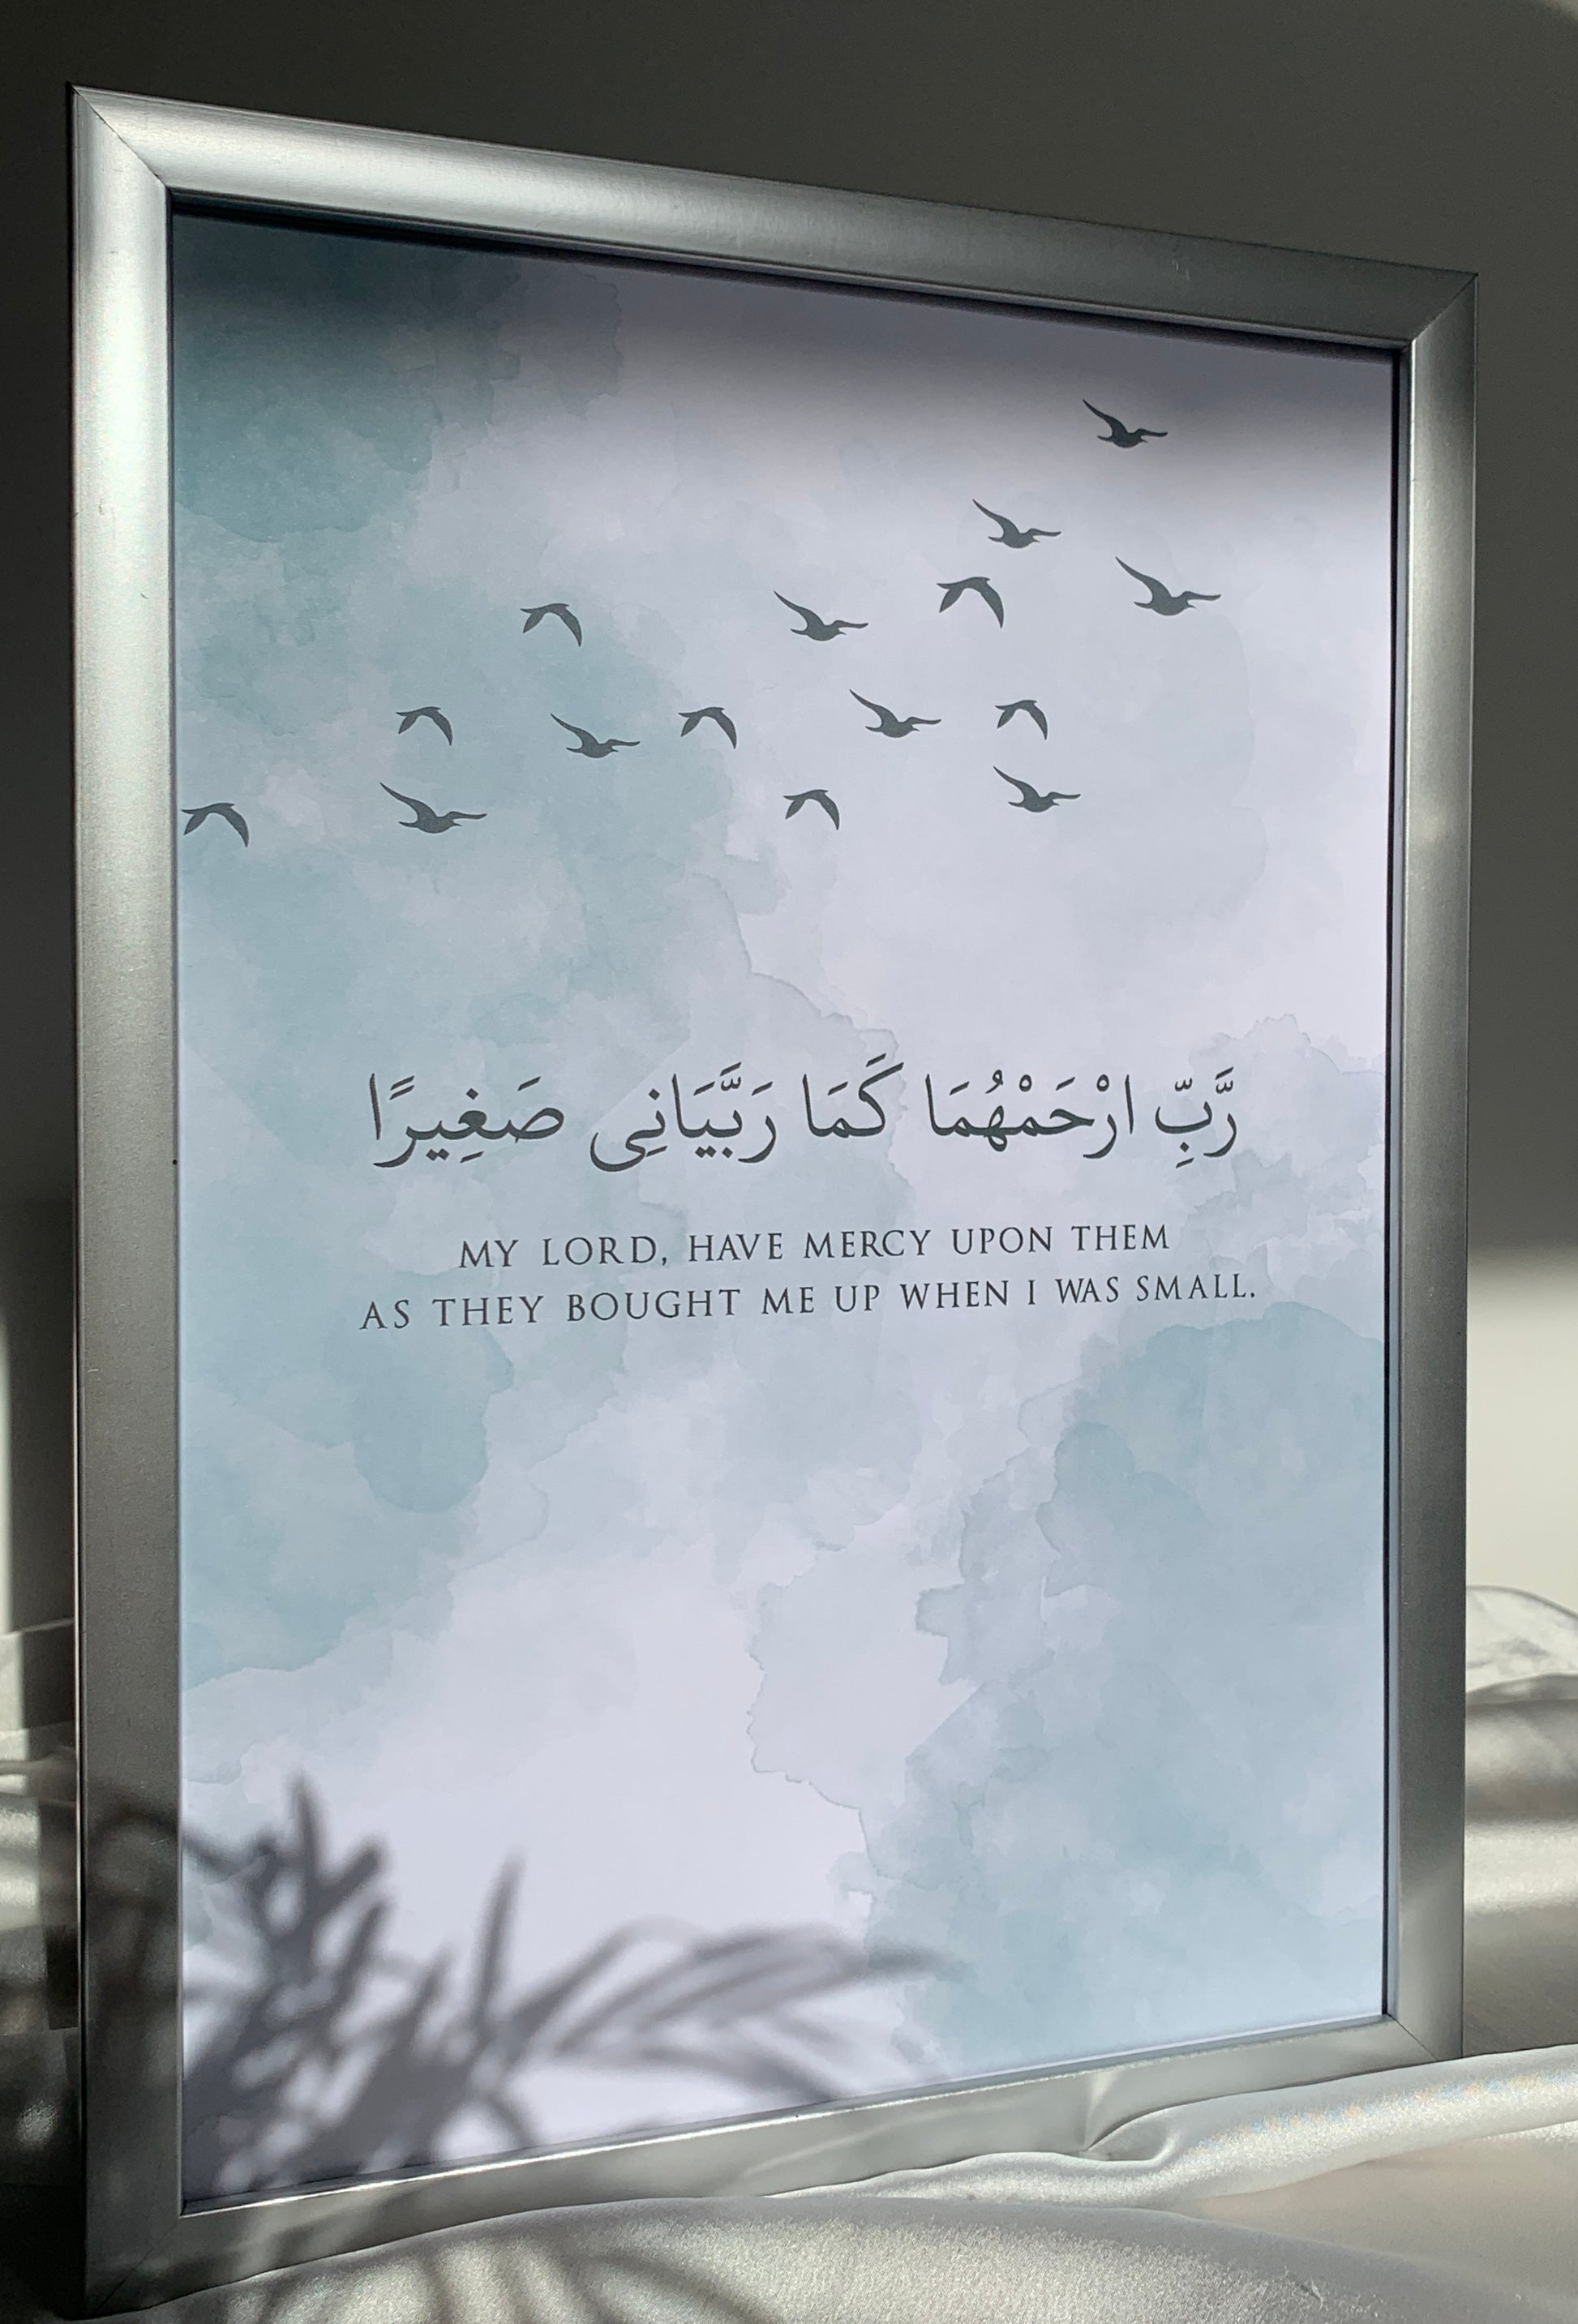 رَّبِّ ارْحَمْهُمَا كَمَا رَبَّيَانِى صَغِيرًا
MY LORD, HAVE MERCY UPON THEM
AS THEY BOUGHT ME UP WHEN I WAS SMALL.